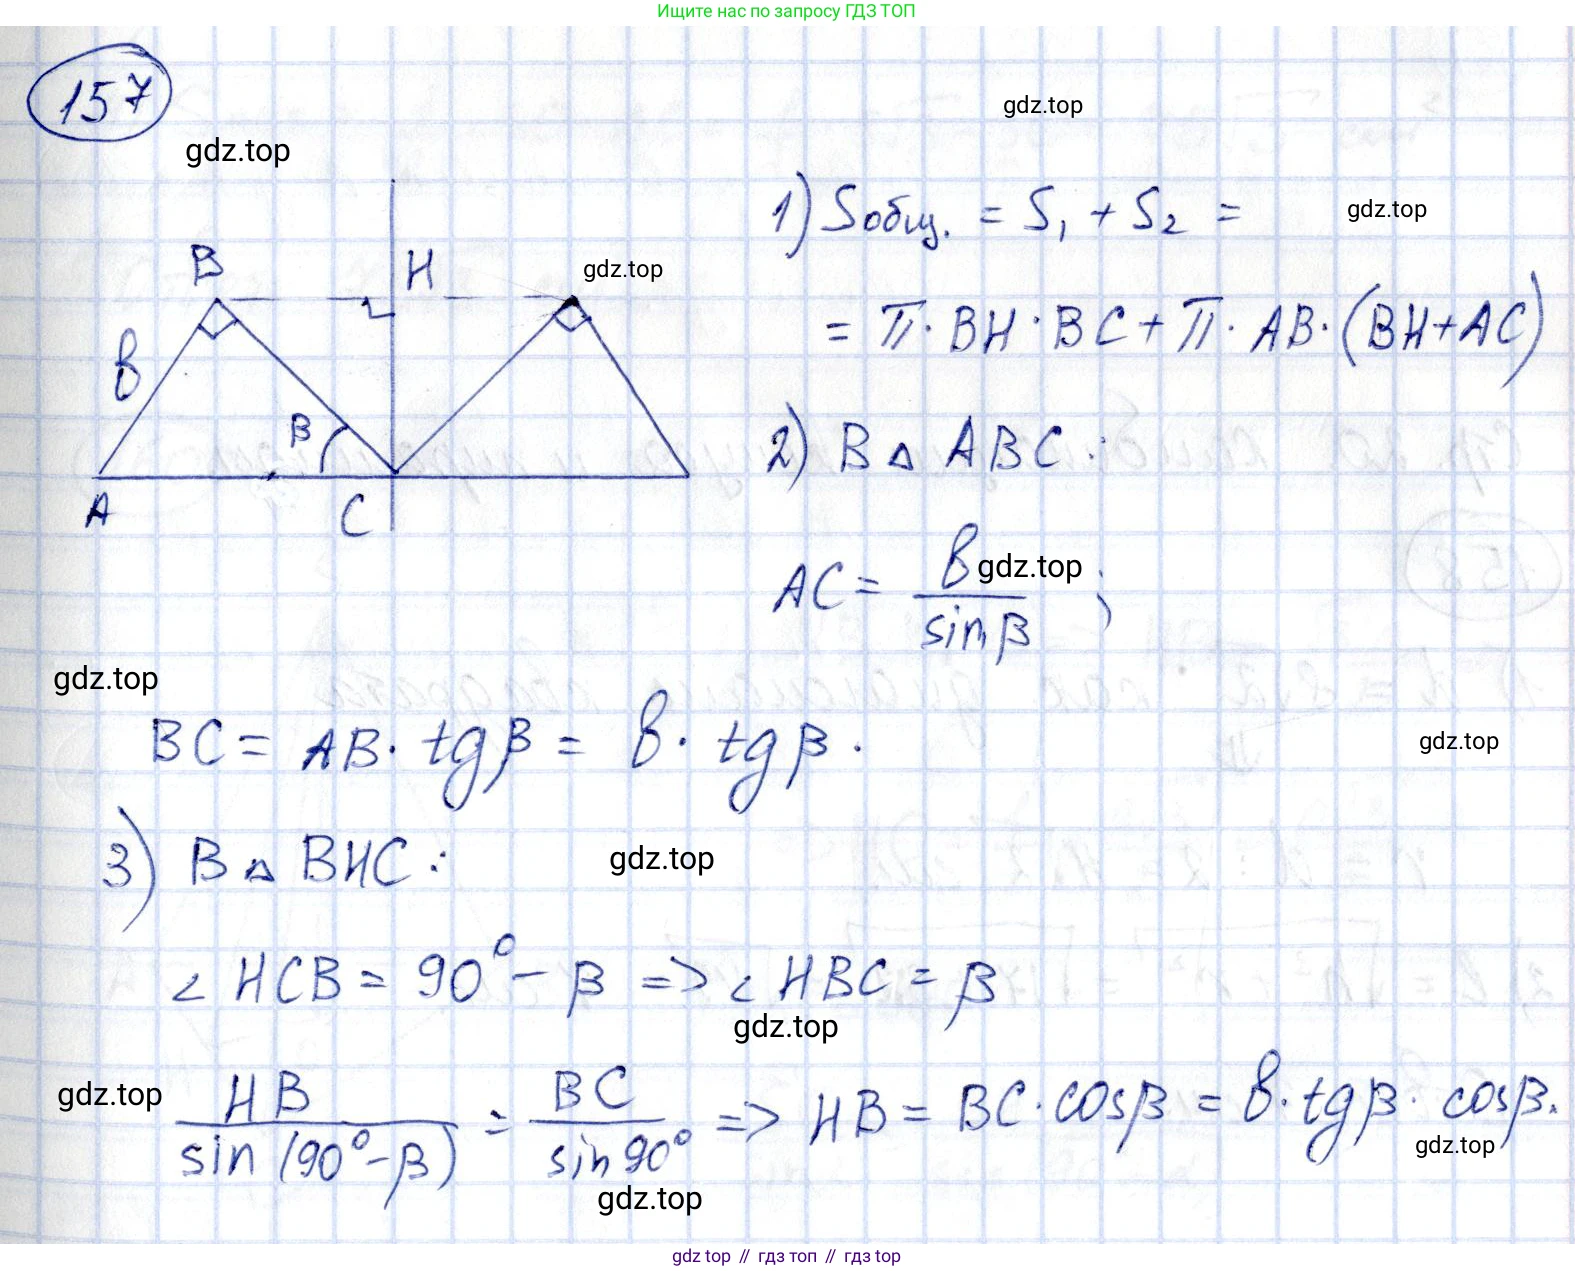 Ищите нас по запросу ГДЗ ТОП
157
gdz.top
gdz.top
1) Sобщ. = S₁ + S₂ =
gdz.top
B
H
gdz.top
= π · BH · BC + π · AB · (BH + AC)
в
β
2) В △ ABC:
A
C
AC = в / sin β ;
gdz.top
gdz.top
BC = AB · tg β = в · tg β .
gdz.top
3) В △ BHC:
gdz.top
∠ HCB = 90° − β => ∠ HBC = β
gdz.top
gdz.top
HB / sin (90° − β) = BC / sin 90° => HB = BC · cos β = в · tg β · cos β.
gdz.top
gdz.top
gdz top // гдз топ // гдз top